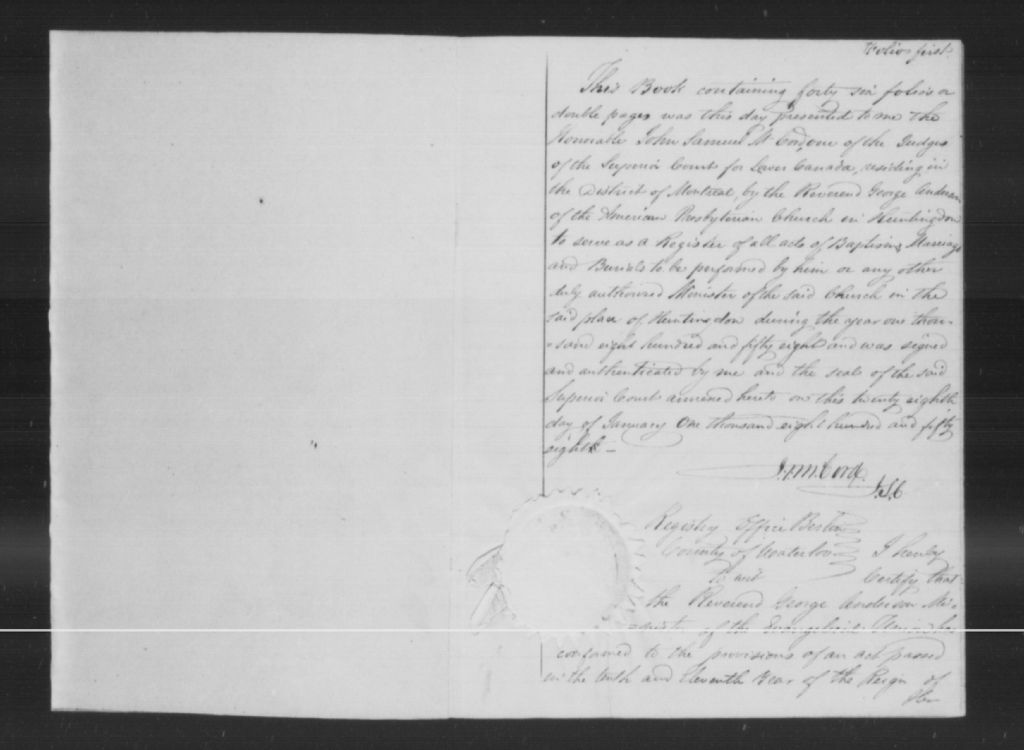 Folios first
This Book containing forty six folios or
double pages was this day presented to me The
Honorable John Samuel Mc Cord one of the Judges
of the Superior Court for Lower Canada, residing in
the District of Montreal, by the Reverend George Anderson
of the American Presbyterian Church in Huntingdon
to serve as a Register of all acts of Baptisms, Marriage
and Burials to be performed by him or any other
duly authorized Minister of the said Church in the
said place of Huntingdon during the year one thou-
-sand eight hundred and fifty eight and was signed
and authenticated by me and the seal of the said
Superior Court annexed hereto on this twenty eighth
day of January One thousand eight hundred and fifty
eight -
J.S. McCord
J.S.C
Registry Office Berlin
County of Waterloo I hereby
to wit Certify that
the Reverend George Anderson Mi-
-nister of the Evangelical Union has
conformed to the provisions of an act passed
in the tenth and Eleventh Year of the Reign of
Her